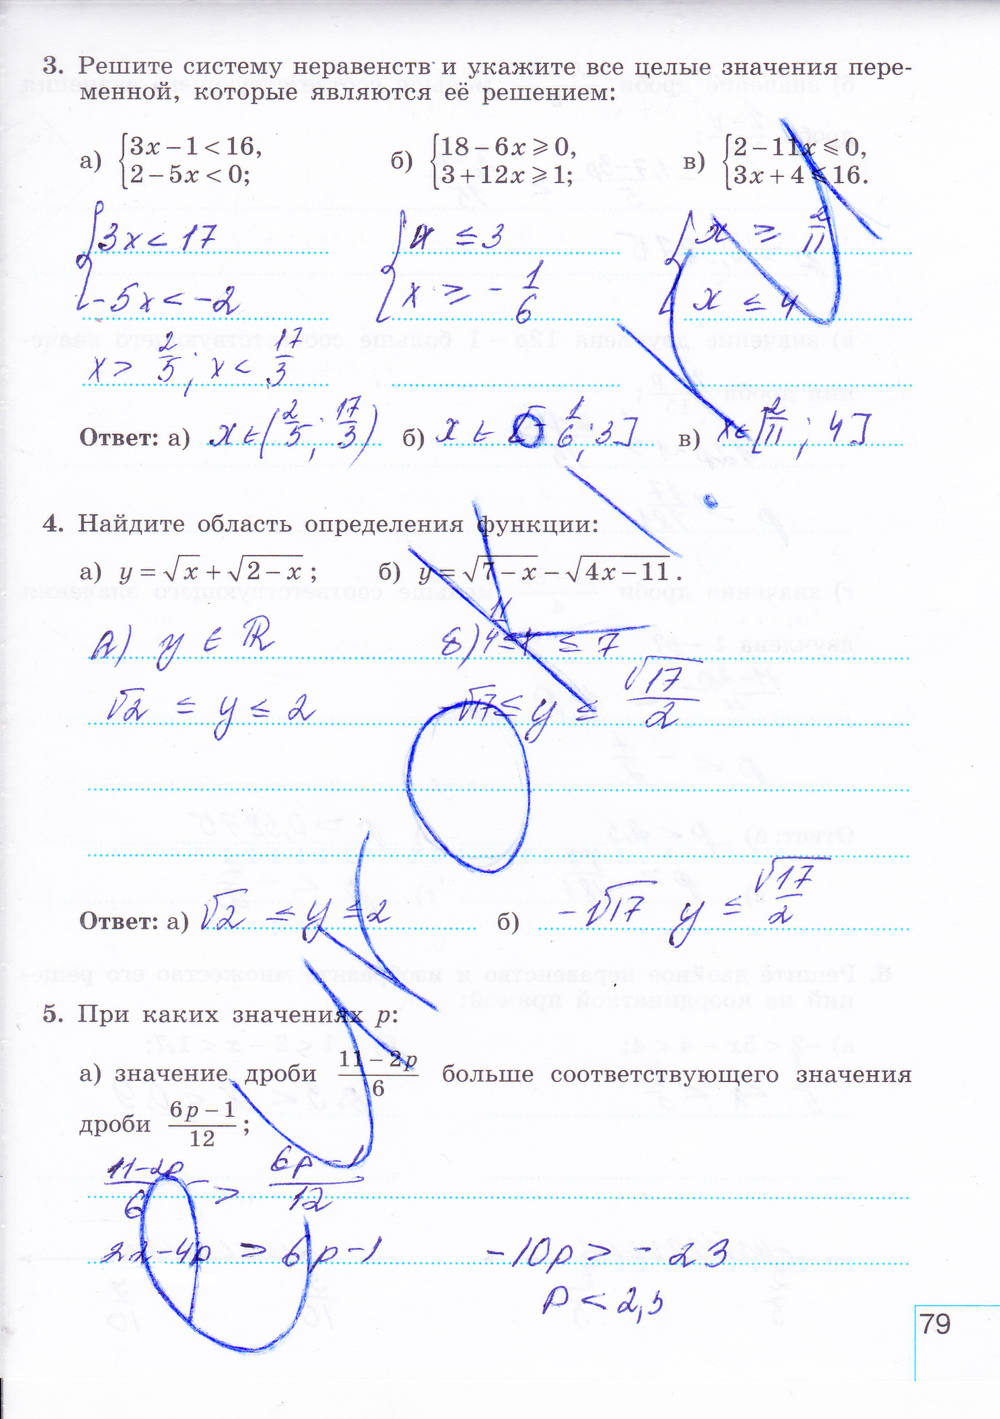 3. Решите систему неравенств и укажите все целые значения пере-
менной, которые являются её решением:
а) {3x − 1 < 16, 2 − 5x < 0; б) {18 − 6x ⩾ 0, 3 + 12x ⩾ 1; в) {2 − 11x ⩽ 0, 3x + 4 ⩽ 16.
{3x < 17 {x ≤ 3 {x ≥ 2/11
-5x < -2 x ≥ -1/6 x ≤ 4
x > 2/5; x < 17/3
Ответ: а) x ∈ (2/5; 17/3) б) x ∈ [-1/6; 3] в) x ∈ [2/11; 4]
4. Найдите область определения функции:
а) y = √x + √(2 − x); б) y = √(7 − x) − √(4x − 11).
А) y ∈ ℝ Б) 11/4 ≤ x ≤ 7
√2 ≤ y ≤ 2 -√17 ≤ y ≤ √17/2
Ответ: а) √2 ≤ y ≤ 2 б) -√17 y ≤ √17/2
5. При каких значениях p:
а) значение дроби (11 − 2p)/6 больше соответствующего значения
дроби (6p − 1)/12;
(11-2p)/6 > (6p-1)/12
22-4p > 6p-1 -10p > -23
p < 2,3
79